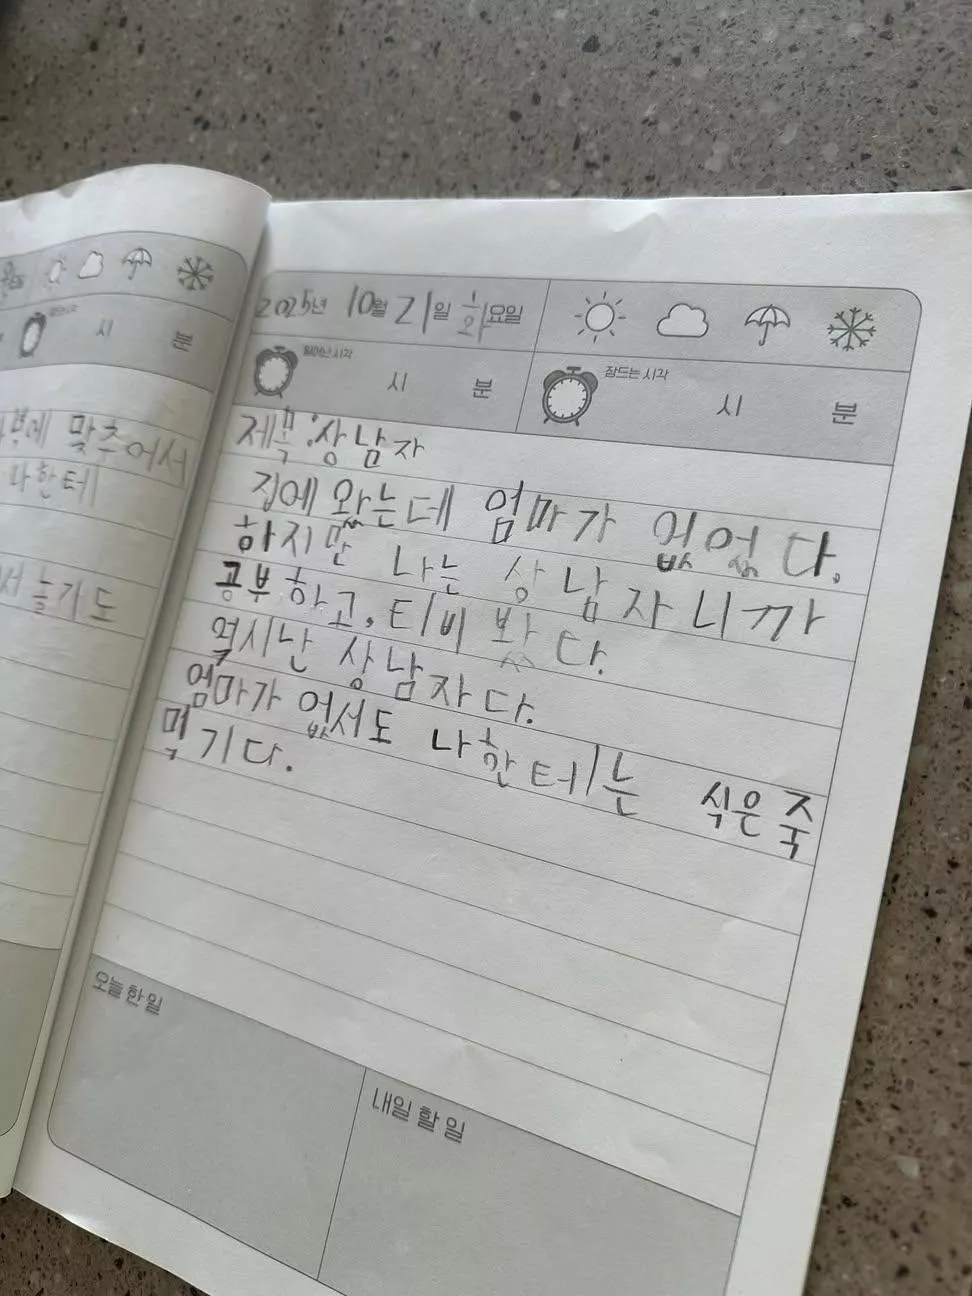 시 분
부에 맞추어서
나한테
서 놀기도
2025년 10월 21일 화요일
일어난 시각 시 분 잠드는 시각 시 분
제목:상남자
집에 왔는데 엄마가 없었다.
하지만 나는 상남자니까
공부하고, 티비 봤다.
역시난 상남자다.
엄마가 없서도 나한테는 식은죽
먹기다.
오늘 한 일
내일 할 일